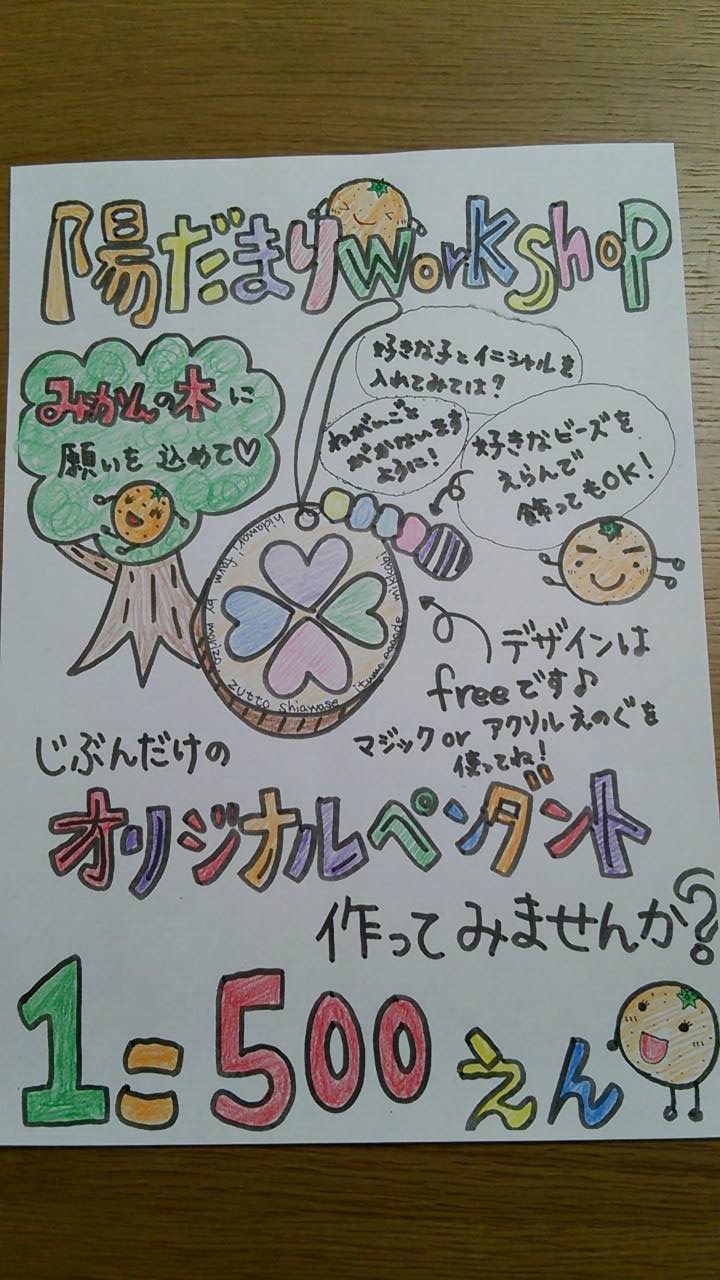 陽だまりworkshop
みかんの木に
願いを込めて♡
好きな子とイニシャルを
入れてみては?
ねがいごと
がかないます
ように!
好きなビーズを
えらんで
飾ってもOK!
hidamari farm by
zutto shiawase
デザインは
freeです♪
マジック or アクリルえのぐを
使ってね!
じぶんだけの
オリジナルペンダント
作ってみませんか?
1=500えん